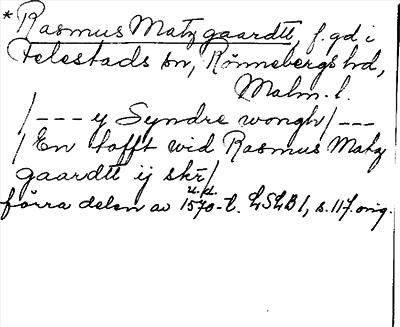 *Rasmus Matz gaardtt, f. gd i
Felestads sn, Rönnebergs hd,
Malm. l.
/--- y Syndre wongh/---
/En tofft wid Rasmus Matz
gaardtt ij skr̄/
u.d.
förra delen av 1570-t. LSLB1, s. 117. orig.